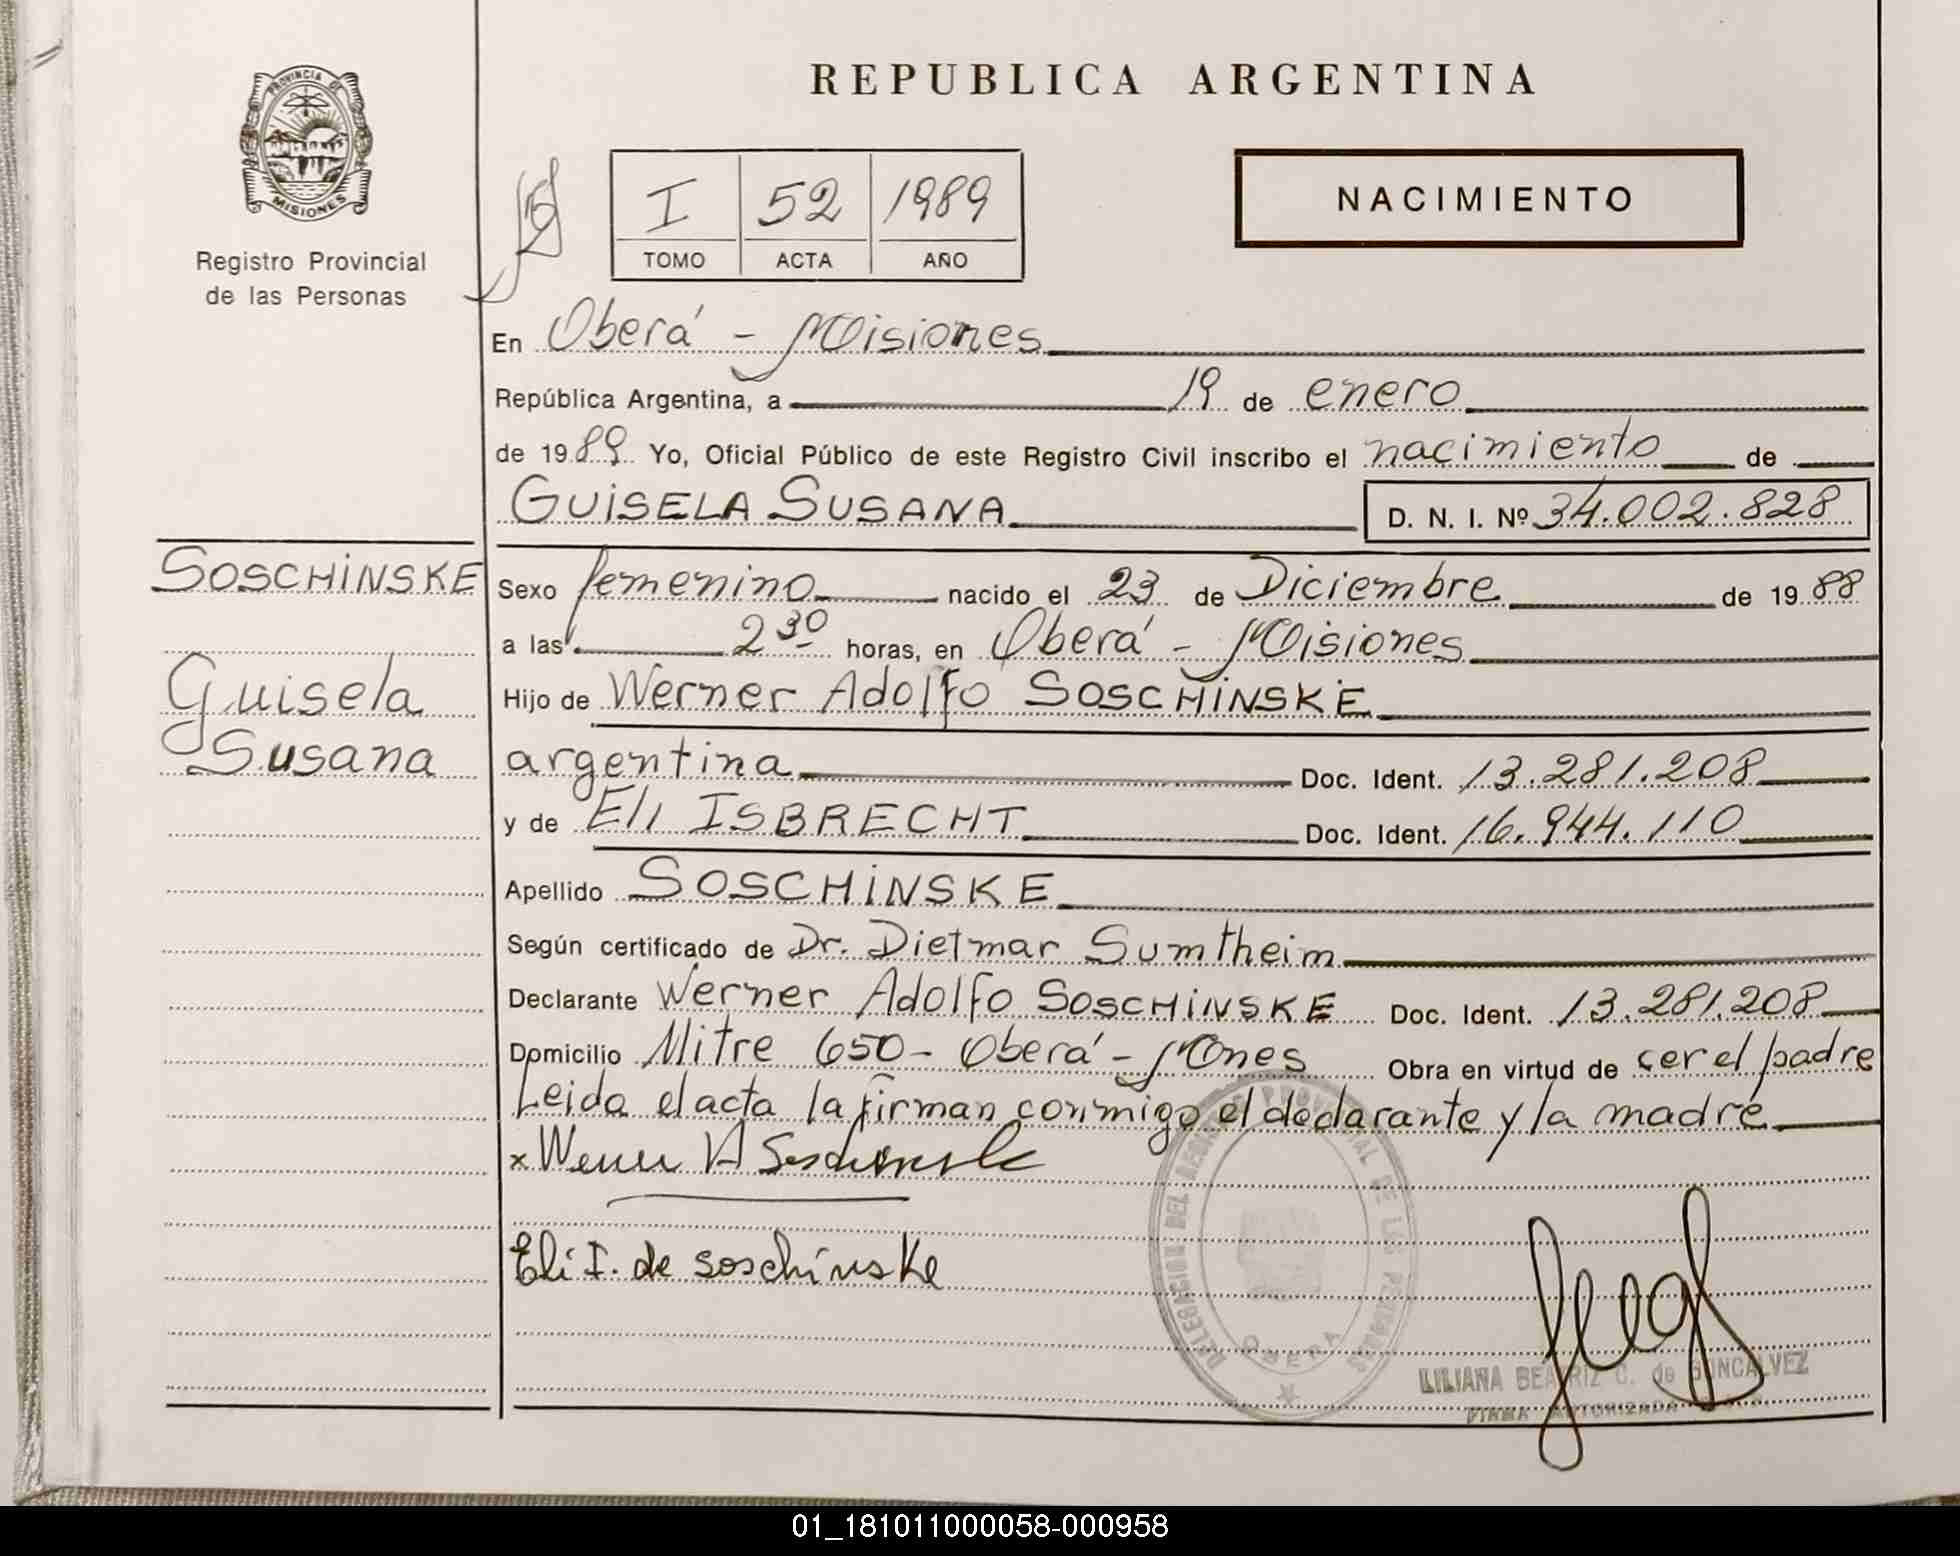 REPUBLICA ARGENTINA
PROVINCIA DE
MISIONES
Registro Provincial
de las Personas
I 52 1989
TOMO ACTA AÑO
NACIMIENTO
En Oberá - Misiones
República Argentina, a 19 de enero
de 1989 Yo, Oficial Público de este Registro Civil inscribo el nacimiento de
GUISELA SUSANA D. N. I. Nº 34.002.828
SOSCHINSKE
Guisela
Susana
Sexo femenino nacido el 23 de Diciembre de 1988
a las 2 30 horas, en Oberá - Misiones
Hijo de Werner Adolfo SOSCHINSKE
argentina Doc. Ident. 13.281.208
y de Eli ISBRECHT Doc. Ident. 16.944.110
Apellido SOSCHINSKE
Según certificado de Dr. Dietmar Sumtheim
Declarante Werner Adolfo SOSCHINSKE Doc. Ident. 13.281.208
Domicilio Mitre 650 - Oberá - Mones Obra en virtud de cer el padre
Leida el acta la firman conmigo el declarante y la madre
x Werner A Soschinske
Eli I. de Soschinske
DELEGACION DEL REGISTRO PROVINCIAL DE LAS PERSONAS
OBERA
LILIANA BEATRIZ C. de GONCALVEZ
FIRMA AUTORIZADA
01_181011000058-000958